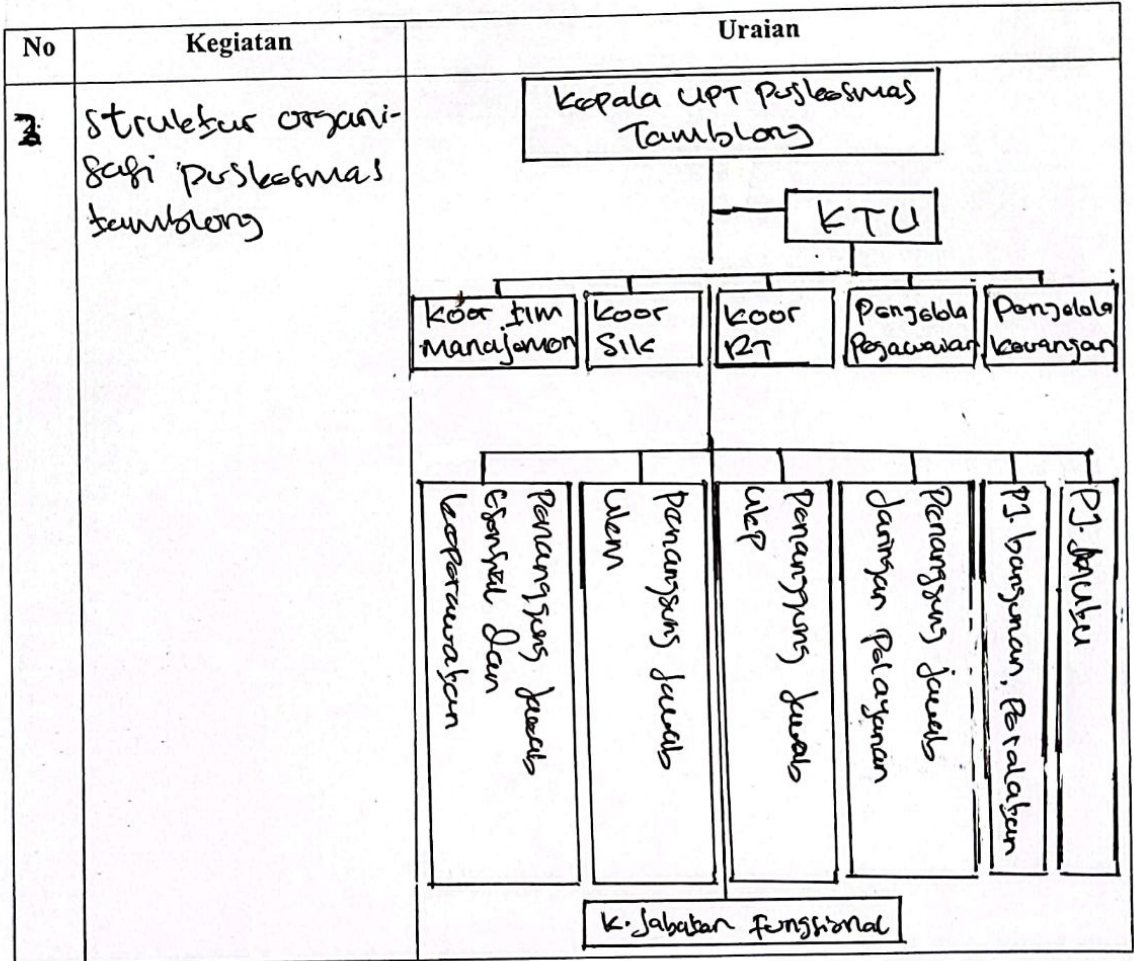 No
Kegiatan
Uraian
Struktur organi-
sasi puskesmas
tamblong
Kepala UPT Puskesmas
Tamblong
KTU
Koor tim
Manajemen
Koor
SIK
Koor
RT
Pengelola
Pegawaian
Pengelola
Keuangan
Penanggung Jawab
Esensial dan
keperawatan
Penanggung Jawab
UKM
Penanggung Jawab
UKP
Penanggung jawab
Jaringan Pelayanan
PJ. bangunan, Peralatan
PJ. Mutu
K. Jabatan Fungsional